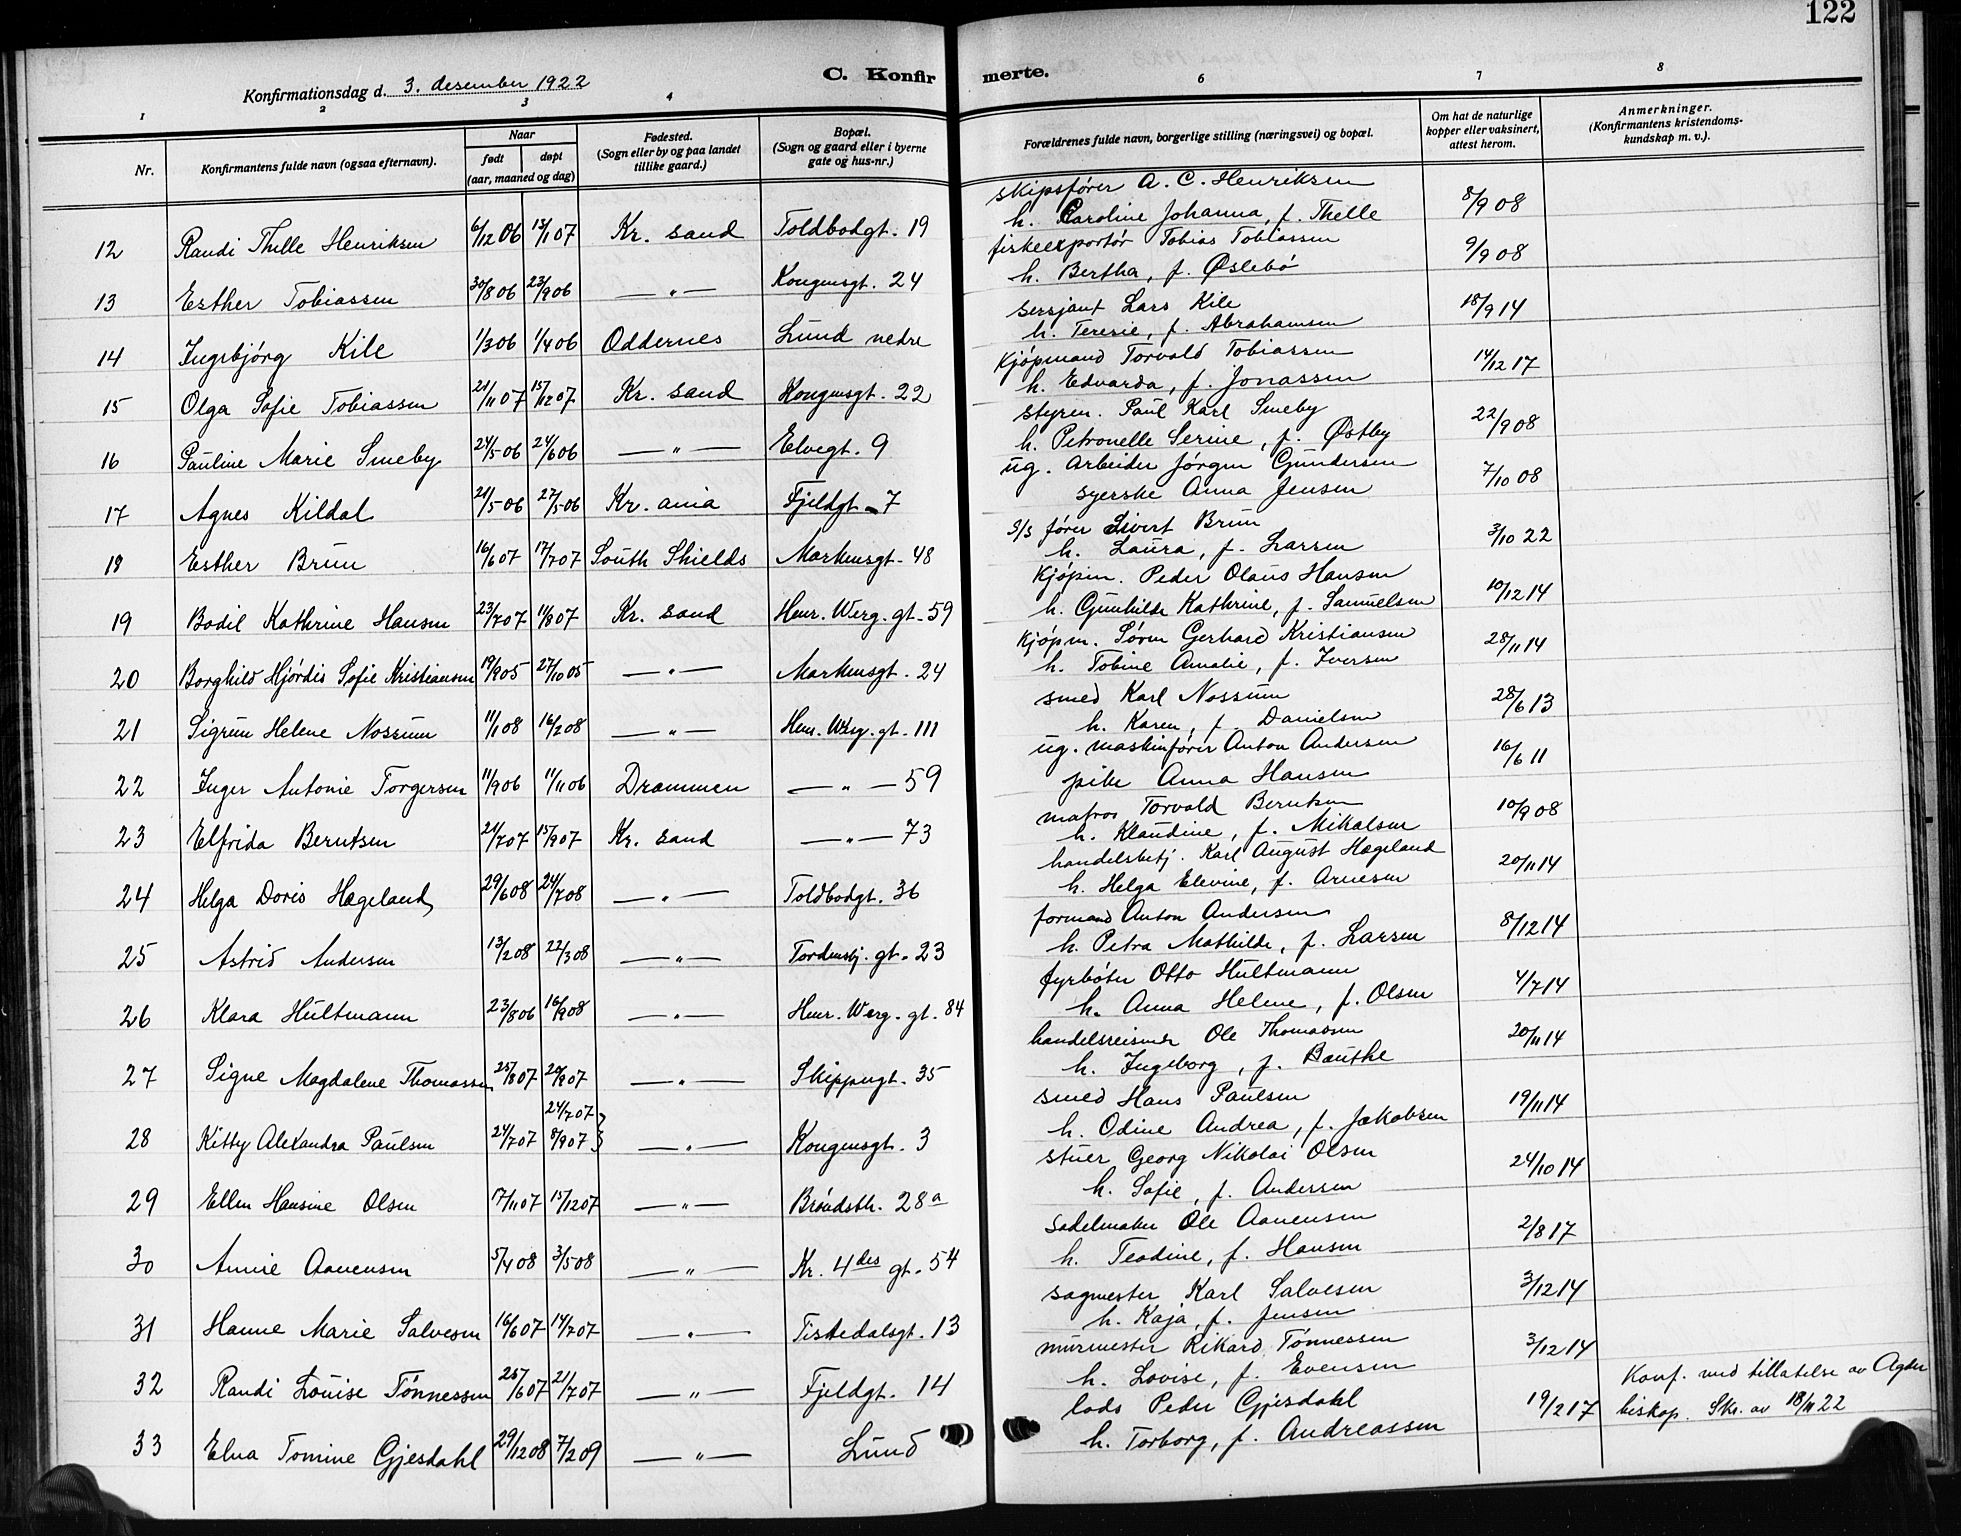 122
C. Konfirmerte.
Konfirmationsdag d. 3. desember 1922
1 2 3 4 6 7 8
Nr.
Konfirmantens fulde navn (ogsaa efternavn).
Naar
født døpt
(aar, maaned og dag)
Fødested.
(Sogn eller by og paa landet
tillike gaard.)
Bopæl.
(Sogn og gaard eller i byerne
gate og hus-nr.)
Forældrenes fulde navn, borgerlige stilling (næringsvei) og bopæl.
Om hat de naturlige
kopper eller vaksinert,
attest herom.
Anmerkninger.
(Konfirmantens kristendoms-
kundskap m. v.).
12 Randi Thelle Henriksen 6/12 06 13/1 07 Kr. sand Toldbodgt. 19
skipsfører A. C. Henriksen
h. Caroline Johanna, f. Thelle 8/9 08
13 Esther Tobiassen 30/8 06 23/9 06 — " — Kongensgt. 24
fiskeexportør Tobias Tobiassen
h. Bertha, f. Øslebø 9/9 08
14 Ingebjørg Kile 1/3 06 1/4 06 Oddernes Lund nedre
sersjant Lars Kile
h. Teresie, f. Abrahamsen 18/9 14
15 Olga Sofie Tobiassen 21/11 07 15/12 07 Kr. sand Kongensgt. 22
Kjøpmand Torvald Tobiassen
h. Edvarda, f. Jonassen 14/12 17
16 Pauline Marie Smeby 24/5 06 24/6 06 — " — Elvegt. 9
styrm. Paul Karl Smeby
h. Petronelle Serine, f. Østby 22/9 08
17 Agnes Kildal 21/5 06 27/5 06 Kr. ania Fjeldgt. 7
ug. arbeider Jørgen Gundersen
syerske Anna Jensen 7/10 08
18 Esther Brun 16/6 07 17/7 07 South Shields Markensgt. 48
S/S fører Sivert Brun
h. Laura, f. Larsen 3/10 22
19 Bodil Kathrine Hansen 23/7 07 11/8 07 Kr. sand Henr. Werg. gt. 59
Kjøpm. Peder Olaus Hansen
h. Gunhilde Kathrine, f. Samuelsen 10/12 14
20 Borghild Hjørdis Sofie Kristiansen 19/9 05 27/10 05 — " — Markensgt. 24
Kjøpm. Søren Gerhard Kristiansen
h. Tobine Amalie, f. Iversen 28/11 14
21 Sigrun Helene Nossum 11/1 08 16/2 08 — " — Henr. Werg. gt. 111
smed Karl Nossum
h. Karen, f. Danielsen 28/6 13
22 Inger Antonie Torgersen 11/9 06 11/11 06 Drammen — " — 59
ug. maskinfører Anton Andersen
pike Anna Hansen 16/6 11
23 Elfrida Berntsen 21/7 07 15/9 07 Kr. sand — " — 73
matros Torvald Berntsen
h. Klaudine, f. Mikalsen 10/9 08
24 Helga Doris Hægeland 29/6 08 24/7 08 — " — Toldbodgt. 36
handelsbetj. Karl August Hægeland
h. Helga Elevine, f. Arnesen 20/11 14
25 Astrid Andersen 13/2 08 22/3 08 — " — Tordenskj. gt. 23
formand Anton Andersen
h. Petra Mathilde, f. Larsen 8/12 14
26 Klara Hultmann 23/8 06 16/9 08 — " — Henr. Werg. gt. 84
fyrbøter Otto Hultmann
h. Anna Helene, f. Olsen 4/7 14
27 Signe Magdalene Thomassen 25/8 07 29/9 07 — " — Skippergt. 35
handelsreisende Ole Thomassen
h. Ingeborg, f. Bauthe 20/11 14
28 Kitty Alexandra Paulsen 24/7 07 24/7 07 8/9 07 — " — Kongensgt. 3
smed Hans Paulsen
h. Odine Andrea, f. Jakobsen 19/11 14
29 Ellen Hansine Olsen 17/11 07 15/12 07 — " — Brøndstr. 28a
stuer Georg Nikolai Olsen
h. Sofie, f. Andersen 24/10 14
30 Annie Aanensen 5/4 08 3/5 08 — " — Kr. 4des gt. 54
sadelmaker Ole Aanensen
h. Teodine, f. Hansen 2/8 17
31 Hanne Marie Salvesen 16/6 07 14/7 07 — " — Tistedalsgt. 13
sagmester Karl Salvesen
h. Kaja, f. Jensen 3/12 14
32 Randi Louise Tønnessen 25/6 07 21/7 07 — " — Fjeldgt. 14
murmester Rikard Tønnessen
h. Lovise, f. Evensen 3/12 14
33 Elna Tomine Gjesdahl 29/12 08 7/2 09 — " — Lund
lods Peder Gjesdahl
h. Torborg, f. Andreassen 19/2 17
Konf. med tillatelse av Agder
biskop. Skr. av 18/11 22